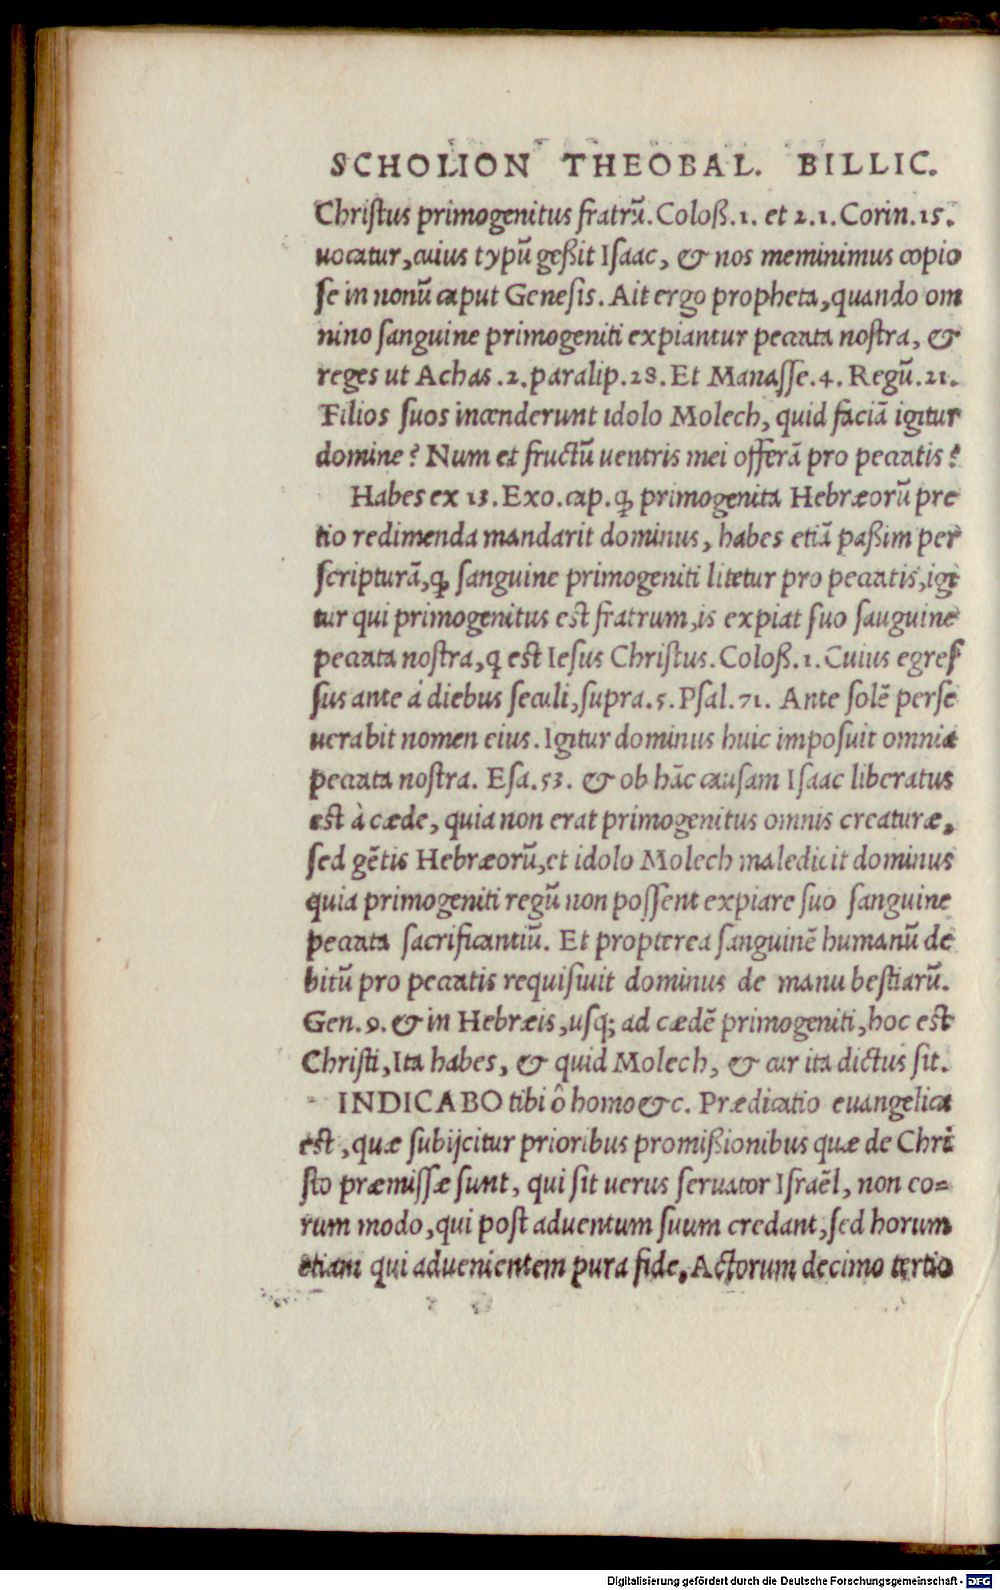 SCHOLION THEOBAL. BILLIC.
Chriſtus primogenitus fratrũ. Coloß. 1. et 2. 1. Corin. 15.
uocatur, cuius typũ geßit Iſaac, & nos meminimus copio
ſe in nonũ caput Geneſis. Ait ergo propheta, quando om
nino ſanguine primogeniti expiantur peccata noſtra, &
reges ut Achas . 2. paralip. 28. Et Manaſſe. 4. Regũ. 21.
Filios ſuos incenderunt idolo Molech, quid faciã igitur
domine? Num et fructũ uentris mei offerã pro peccatis?
Habes ex 13. Exo. cap. ꝙ primogenita Hebræorũ pre
tio redimenda mandarit dominus, habes etiã paßim per
ſcripturã, ꝙ ſanguine primogeniti litetur pro peccatis, igi
tur qui primogenitus est fratrum, is expiat ſuo ſauguine
peccata noſtra, q est Ieſus Chriſtus. Coloß. 1. Cuius egreſ
ſus ante á diebus ſeculi, ſupra. 5. Pſal. 71. Ante ſolẽ perſe
uerabit nomen eius. Igitur dominus huic impoſuit omnia
peccata noſtra. Eſa. 53. & ob hãc cauſam Iſaac liberatus
est à cæde, quia non erat primogenitus omnis creaturæ,
ſed gẽtis Hebræorũ, et idolo Molech maledicit dominus
quia primogeniti regũ non poſſent expiare ſuo ſanguine
peccata ſacrificantiũ. Et propterea ſanguinẽ humanũ de
bitũ pro peccatis requiſiuit dominus de manu beſtiarũ.
Gen. 9. & in Hebræis, uſq; ad cædẽ primogeniti, hoc est
Chriſti, Ita habes, & quid Molech, & cur ita dictus ſit.
INDICABO tibi ô homo &c. Prædicatio euangelica
est, quæ ſubijcitur prioribus promißionibus quæ de Chri
ſto præmiſſæ ſunt, qui ſit uerus ſeruator Iſraẽl, non co=
rum modo, qui poſt aduentum ſuum credant, ſed horum
etiam qui aduenientem pura fide. Actorum decimo tertio
Digitalisierung gefördert durch die Deutsche Forschungsgemeinschaft - DFG